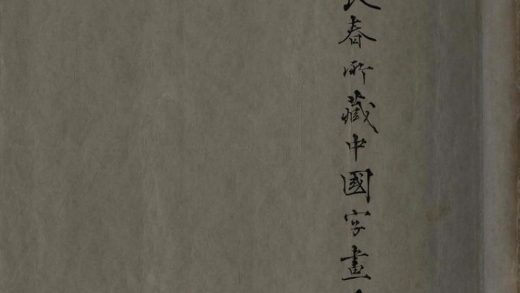 春所藏中國字畫